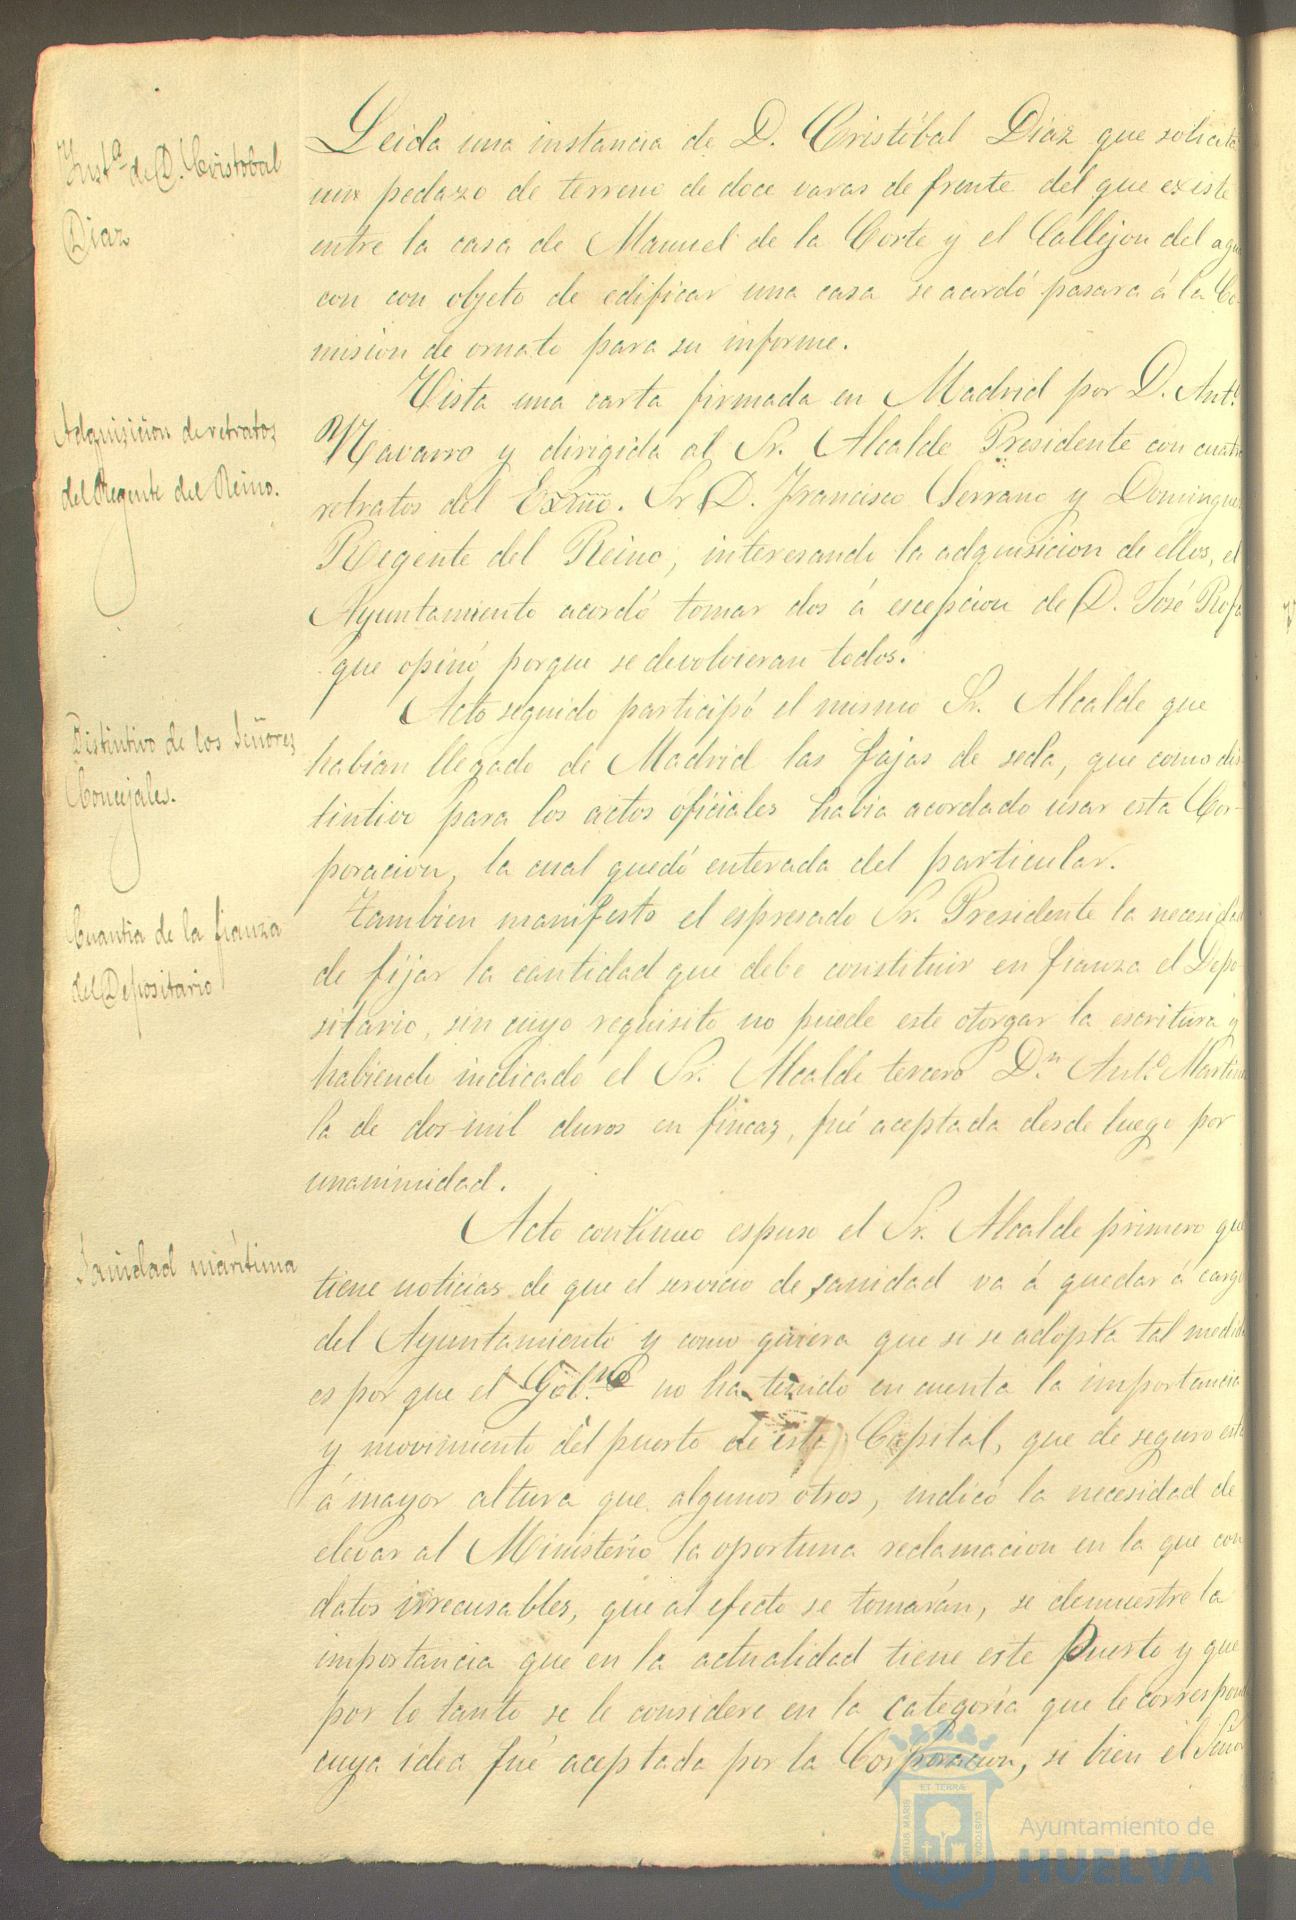 Inst.ª de D. Cristobal
Diaz
Leida una instancia de D. Cristóbal Diaz que solicita
un pedazo de terreno de doce varas de frente del que existe
entre la casa de Manuel de la Corte y el Callejon del agua
con con objeto de edificar una casa se acordó pasara á la Co-
mision de ornato para su informe.
Adquisicion de retratos
del Regente del Reino.
Vista una carta firmada en Madrid por D. Ant.º
Navarro y dirigida al Sr. Alcalde Presidente con cuatro
retratos del Exmo. Sr D. Francisco Serrano y Dominguez
Regente del Reino, interesando la adquisicion de ellos, el
Ayuntamiento acordó tomar dos á escepcion de D. José
que opinó porque se devolvieran todos.
Distintivo de los Señores
Concejales.
Acto seguido participó el mismo Sr. Alcalde que
habian llegado de Madrid las fajas de seda, que como dis
tintivo para los actos oficiales habia acordado usar esta Cor-
poracion, la cual quedó enterada del particular.
Cuantia de la fianza
del Depositario
Tambien manifesto el espresado Sr. Presidente la necesidad
de fijar la cantidad que debe constituir en fianza el Depo
sitario, sin cuyo requisito no puede este otorgar la escritura y
habiendo indicado el Sr. Alcalde tercero D.n Ant.º Martin
la de dos mil duros en fincas, fué aceptada desde luego por
unanimidad.
Sanidad marítima
Acto contínuo espuso el Sr. Alcalde primero que
tiene noticias de que el servicio de sanidad va á quedar á cargo
del Ayuntamiento y como quiera que si se adopta tal medida
es por que el Gob.no no ha tenido en cuenta la importancia
y movimiento del puerto de esta Capital, que de seguro está
á mayor altura que algunos otros, indicó la necesidad de
elevar al Ministerio la oportuna reclamacion en la que con
datos irrecusables, que al efecto se tomarán, se demuestre la
importancia que en la actualidad tiene este Puerto y que
por lo tanto se le considere en la categoría que le corresponde
cuya idea fué aceptada por la Corporacion, si bien el Señor
ET TERRÆ
PORTUS MARIS
CUSTODIA
Ayuntamiento de
HUELVA